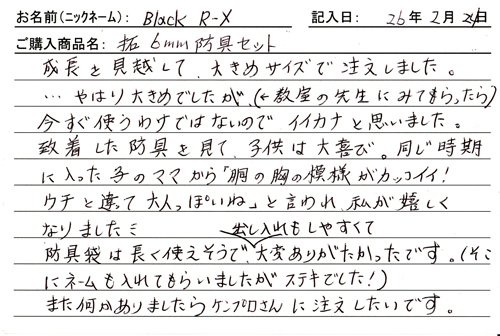 お名前(ニックネーム): Black R-X 記入日: 26年 2月24日
ご購入商品名: 拓 6mm 防具セット
成長を見越して、大きめサイズで注文しました。
…やはり大きめでしたが、(←教室の先生にみてもらったら)
今すぐ使うわけではないので イイカナと思いました。
到着した防具を見て、子供は大喜び。同じ時期
に入った子のママから「胴の胸の模様がカッコイイ!
ウチと違って大人っぽいね」と言われ、私が嬉しく
なりました
出し入れもしやすくて
防具袋は長く使えそうで、大変ありがたかったです。(そこ
にネームも入れてもらいましたが ステキでした!)
また何かありましたらケンプロさんに注文したいです。